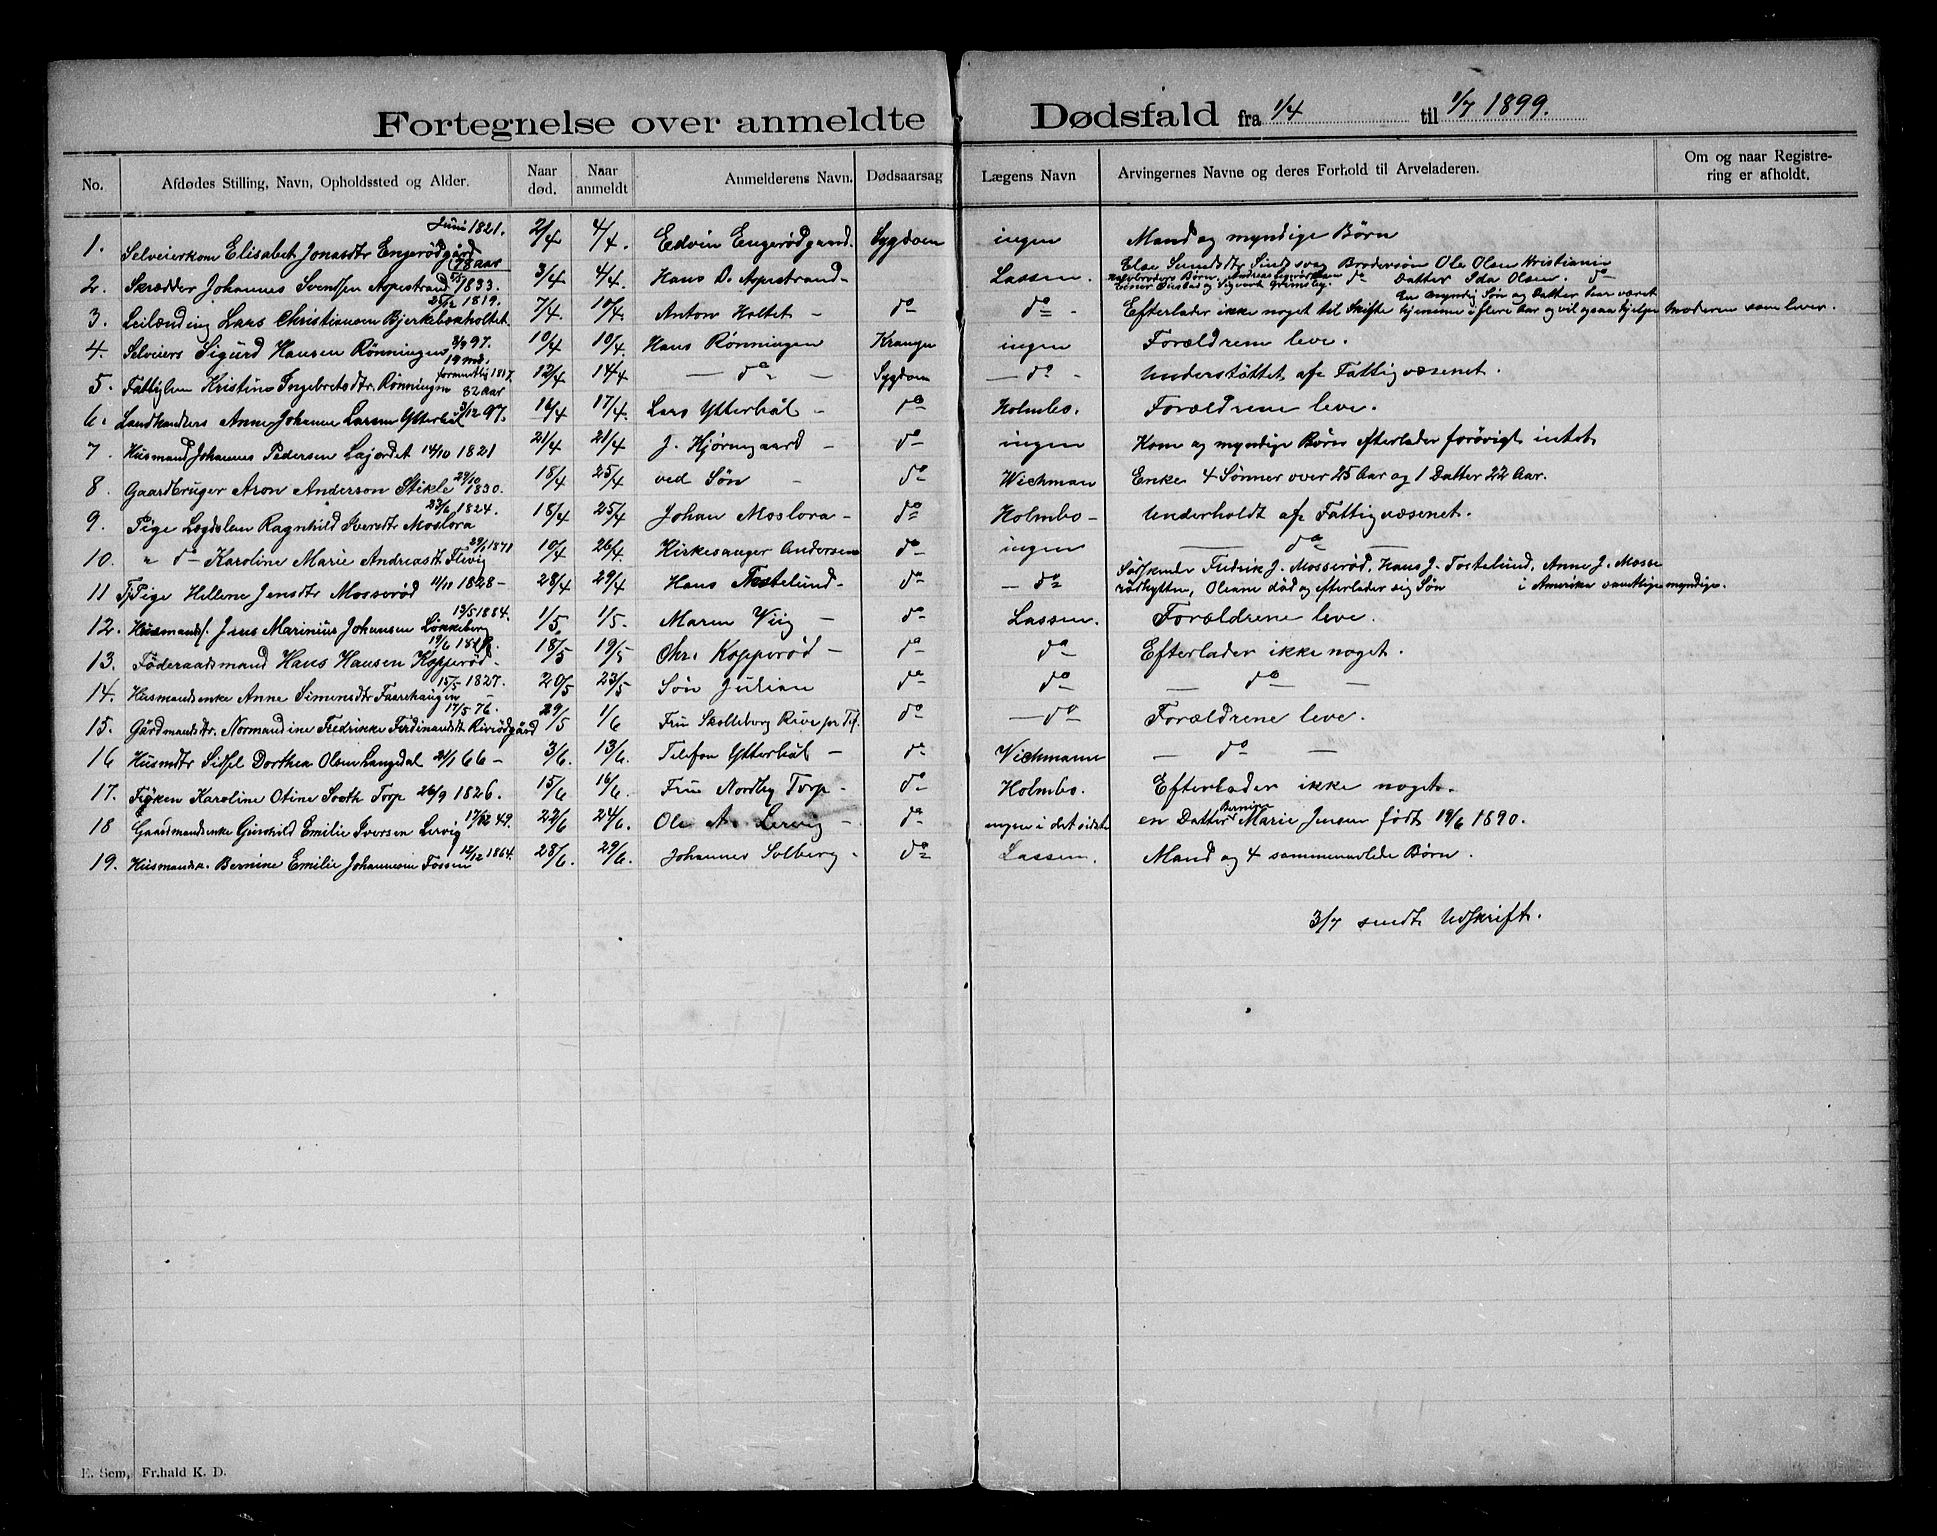 Fortegnelse over anmeldte Dødsfald fra 1/4 til 1/7 1899.
No. Afdødes Stilling, Navn, Opholdssted og Alder. Naar død. Naar anmeldt Anmelderens Navn. Dødsaarsag Lægens Navn Arvingernes Navne og deres Forhold til Arveladeren. Om og naar Registrering er afholdt.
Juni 1821.
1. Selveierkom Elisabet Jonasdtr Engerødgård 2/4 4/4. Edvin Engerødgaard. Sygdom ingen Mand og myndige Børn
78 aar
2. Skrædder Johannes Svensen Apestrand 1833. 3/4 4/4. Hans D. Apestrand - Lassen. Brodersøn Ole Olsen Kristiania
Datter Ida Olsen. do
1819.
3. Leilænding Lars Christiansen Bjerkebokholtet. 7/4 10/4. Anton Holtet - do do - Efterlader ikke noget til Skifte hjemme i flere Aar og vil ogsaa hjelpe moderen som lever.
En myndig Søn og Datter har været
3/9 97.
4. Selveiers Sigurd Hansen Rønningen 10/4 10/4. Hans Rønningen Krampe ingen Forældrene leve.
19 md.
formentlig 1817.
5. Fattiglem Kristine Ingebretsdtr. Rønningen 12/4 14/4 - do - Sygdom - do - Understøttet af Fattigvæsenet.
82 aar
6. Landhandlers Anne Johanne Larsen Ytterbøl 3/12 97. 16/4 17/4. Lars Ytterbøl - do Holmbo. Forældrene leve.
7. Husmand Johannes Pedersen Lajordet 14/10 1821 21/4 21/4 J. Hjørnegaard - do ingen Kone og myndige Børn efterlader forøvrigt intet
8. Gaardbruger Aron Anderson Stikle 1830. 18/4 25/4 ved Søn - do Wichman Enke 4 Sønner over 25 Aar og 1 Datter 22 Aar.
23/6 1824.
9. Pige Logdslem Ragnhild Iversdtr Moslora 18/4 25/4 Johan Moslora - do Holmbo - Underholdt af Fattigvæsenet.
10. " do - Karoline Marie Andreasdtr. Flivig 10/4 26/4 Kirkesanger Andersen do ingen - do -
11 Pige Hellene Jensdtr Mosserød 11/10 1828 - 28/4 29/4 Hans Tostelund - do - do Sødskende Fredrik J. Mosserød, Hans J. Tostelund, Anne J. Mosse
rødhytten, Oleane død og efterlader sig Søn i Amerika samtlige myndige.
13/5 1884.
12. Husmands. Jens Marinius Johansen Løkkeberg 1/5. 1/5. Maren Wiig - do Lassen. Forældrene leve.
19/6
13. Føderaadsmand Hans Hansen Kopperød - 18/5 19/5 Chr. Kopperød - do do Efterlader ikke noget.
15/5 1827.
14. Husmandsenke Anne Simensdtr Faarehaugen - 20/5 23/5 Søn Julian do do - do -
17/5 76.
15. Gårdmandsdtr. Normandine Fredrikke Ferdinandsdt Kirrødgård 29/5 1/6 Fru Skolleborg Rive pr Tlf. do - do Forældrene leve.
16 Husmdtr Sidsel Dorthea Olsen Langedal 21/1 66 - 3/6. 13/6. Telefon Ytterbøl - do Wichmann - do -
17. Frøken Karoline Otine Sooth Torp 26/9 1826. 15/6 16/6. Fru Nordby Torp - do Holmbo. Efterlader ikke noget.
17/12 49.
18 Gaardmandsenke Gunhild Emilie Iversen Lervig 22/6 24/6. Ole A. Lervig - do ingen i det sidste en Datter Bernine Marie Jensen født 19/6 1890.
12/12 1864.
19. Husmandsk. Bernine Emilie Johannesen Fossen 28/6. 29/6. Johannes Solberg. do Lassen. Mand og 4 sammenavlede Børn.
3/7 sendt Udskrift.
E. Sem, Fr.hald K. D.